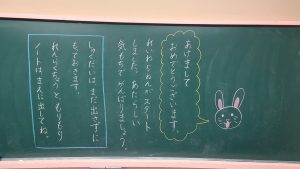 あけまして
おめでとうございます。
れいわ7ねんがスタート
しました。あたらしい
気もちで がんばりましょう。
しゅくだいはまだ出さずに
もっておきます。
れんらくちょうと、もりもり
ノートはまえに出してね。